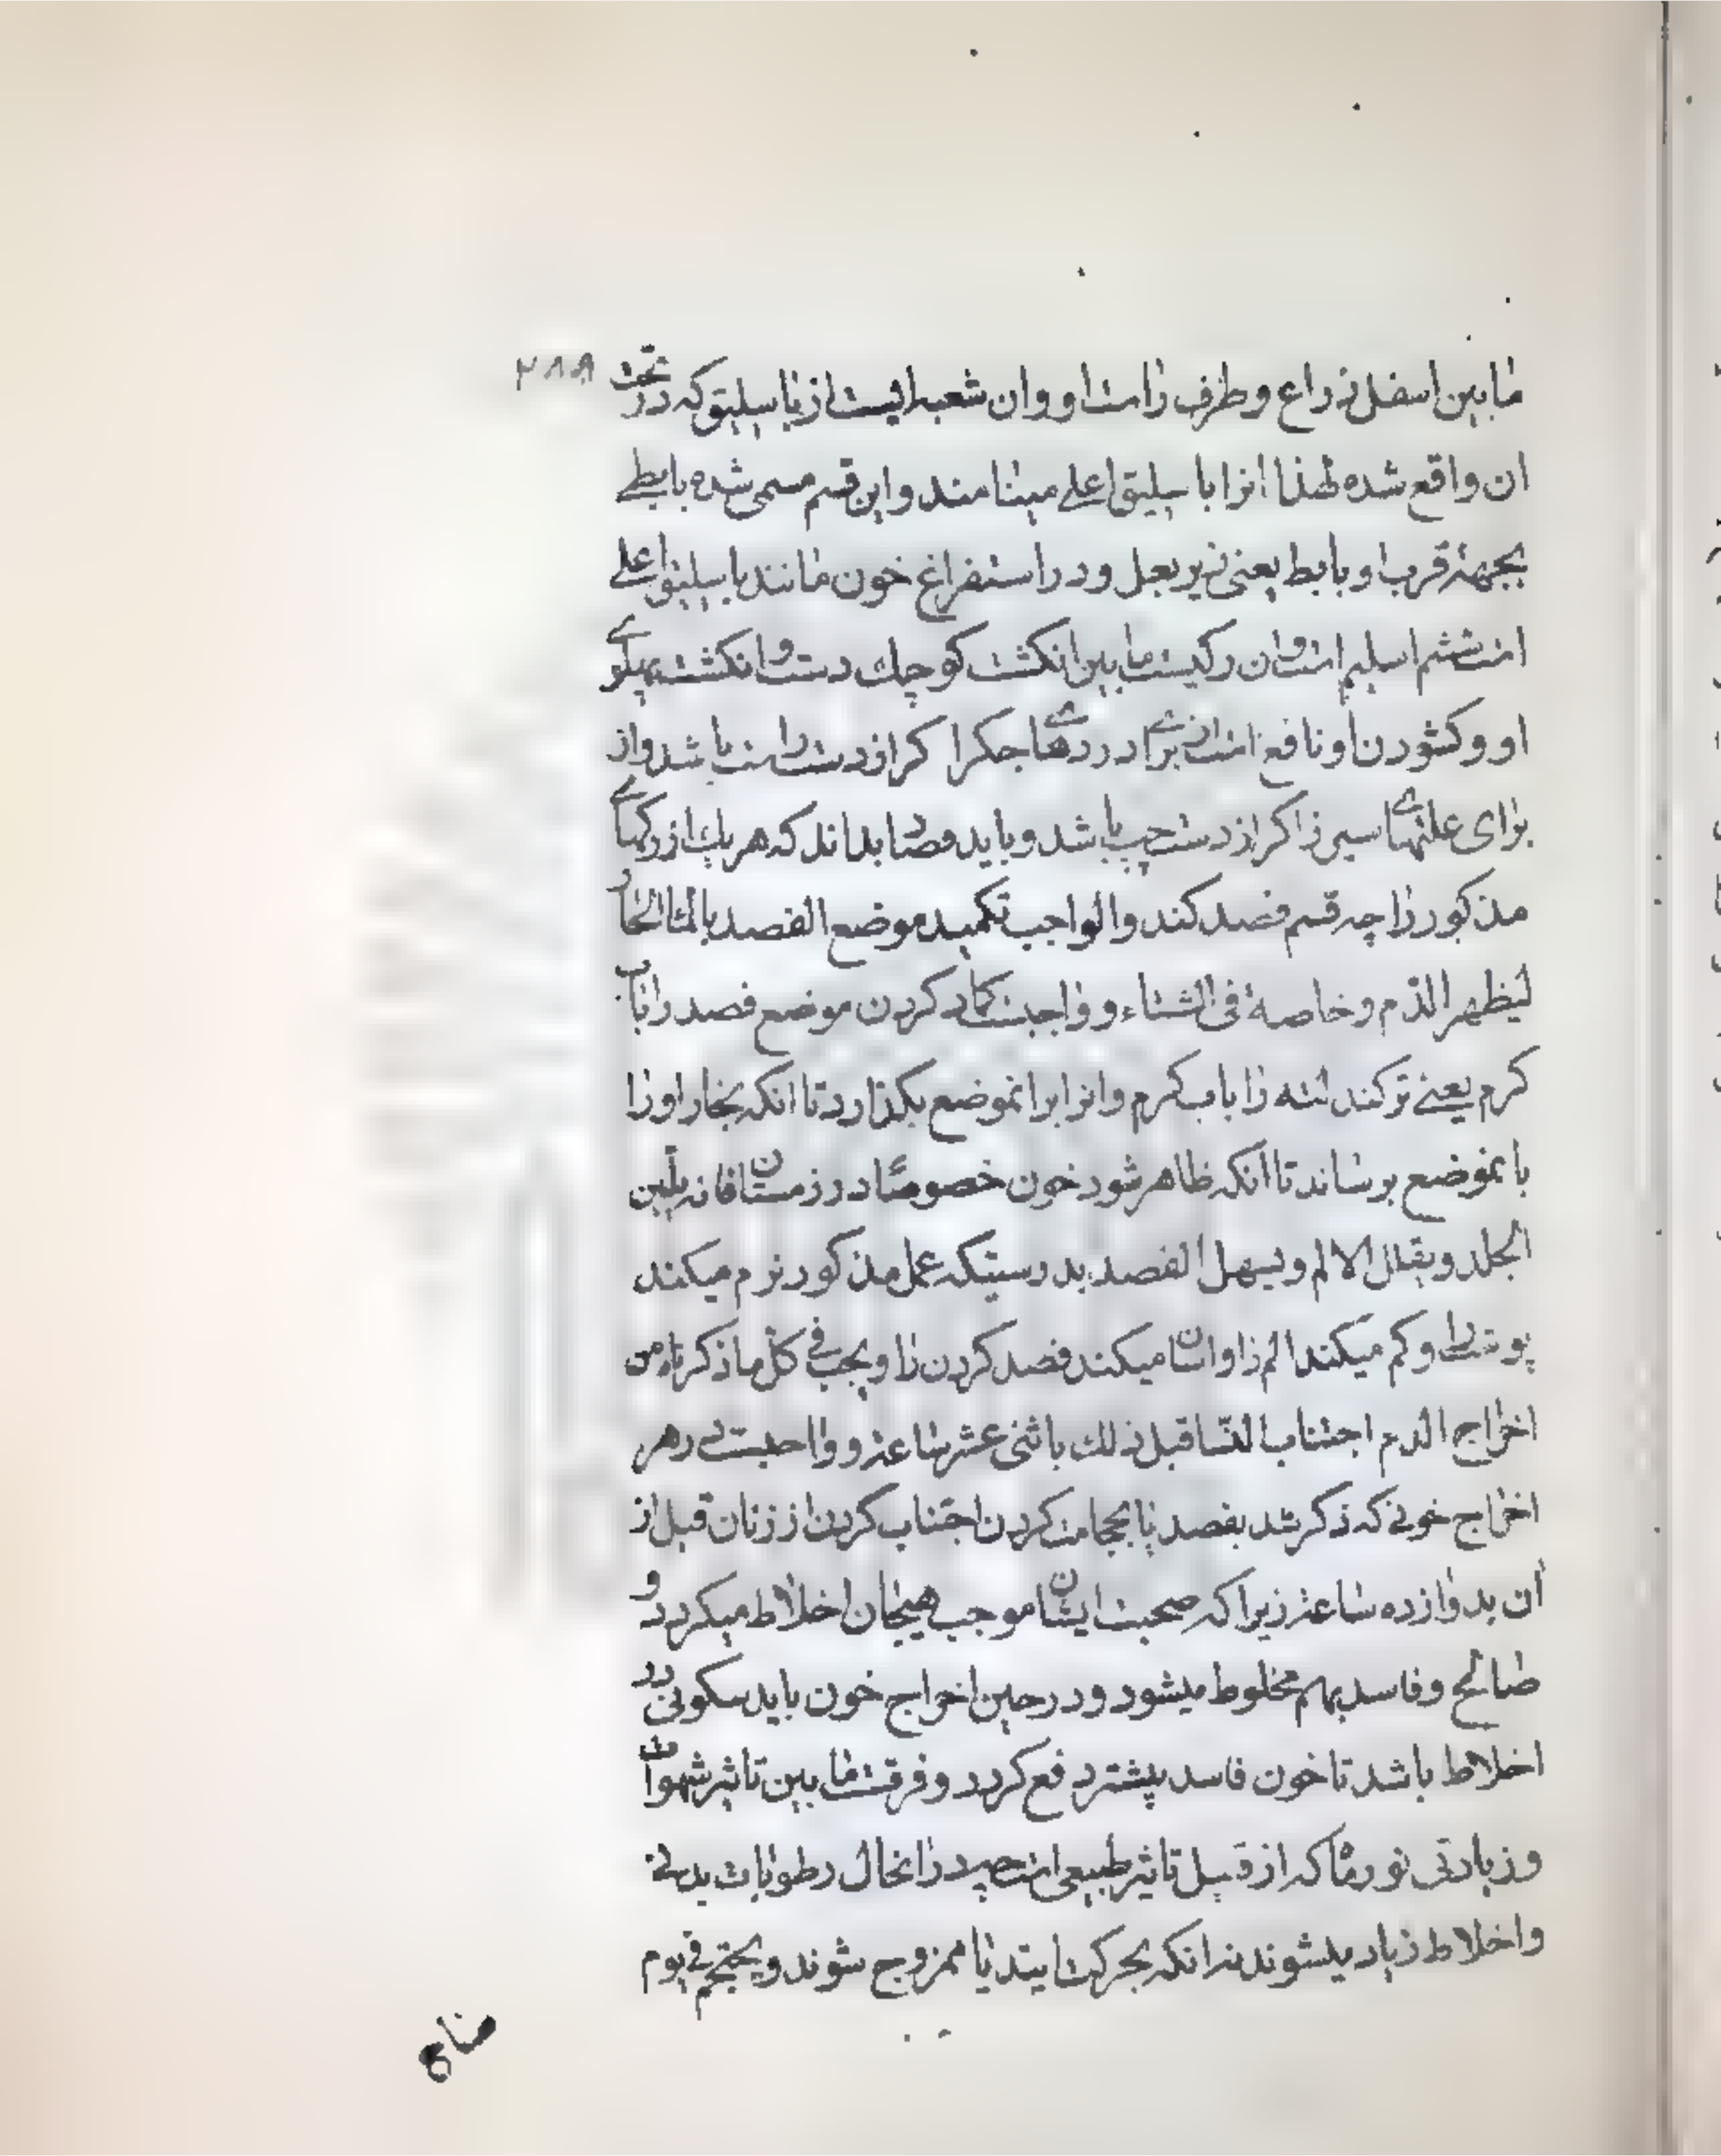 مابین اسفل ذراع و طرف راست او و ان شعبه ایست از باسلیق که در تحت
۲۸۹
ان واقع شده لهذا انرا باسلیق اعلے مینامند و این قسم مسمی شده بابطے
بجهة قرب او بابط یعنی زیر بغل و در استفراغ خون مانند باسلیق اعلے
است ششم اسلیم است و ان رکیست مابین انکشت کوچك دست و انکشت پهلوے
او و کشودن او نافع است از براے دردهاے جکر اکر از دست راست باشد و از
برای علتهاے سپرز اکر از دست چپ باشد و باید فصاد بداند که هر یك از رکهاے
مذکور را چه قسم فصد کند والواجب تکمید موضع الفصد بالماء الحار
لیظهر الدم و خاصة فی الشتاء و واجبست کماد کردن موضع فصد را باب
کرم یعنے تر کند لته را باب کرم و انرا برانموضع بکذارد تا انکه بخار او را
بانموضع برساند تا انکه ظاهر شود خون خصوصًا در زمستان فانه یلین
الجلد و یقلل الالم و یسهل الفصد بدرستیکه عمل مذکور نرم میکند
پوست را و کم میکند الم را و اسان میکند فصد کردن را و یجب فے کل ما ذکرناه من
اخراج الدم اجتناب النسا قبل ذلك باثنی عشر ساعة و واجبست در هر
اخراج خونے که ذکر شد بفصد یا بحجامت کردن اجتناب کردن از زنان قبل از
ان بدوازده ساعة زیرا که صحبت ایشان موجب هیجان اخلاط میکردد و
صالح و فاسد بهم مخلوط میشود و در حین اخراج خون باید سکونی در
اخلاط باشد تا خون فاسد پیشتر دفع کردد و فرقست مابین تاثیر شهوات
و زیادتی نور ماه که از قبیل تاثیر طبیعی است چه در انحال رطوبات بدنے
و اخلاط زیاد میشوند نه انکه بحرکت ایند یا ممزوج شوند و یحتجم فے یوم
صاح